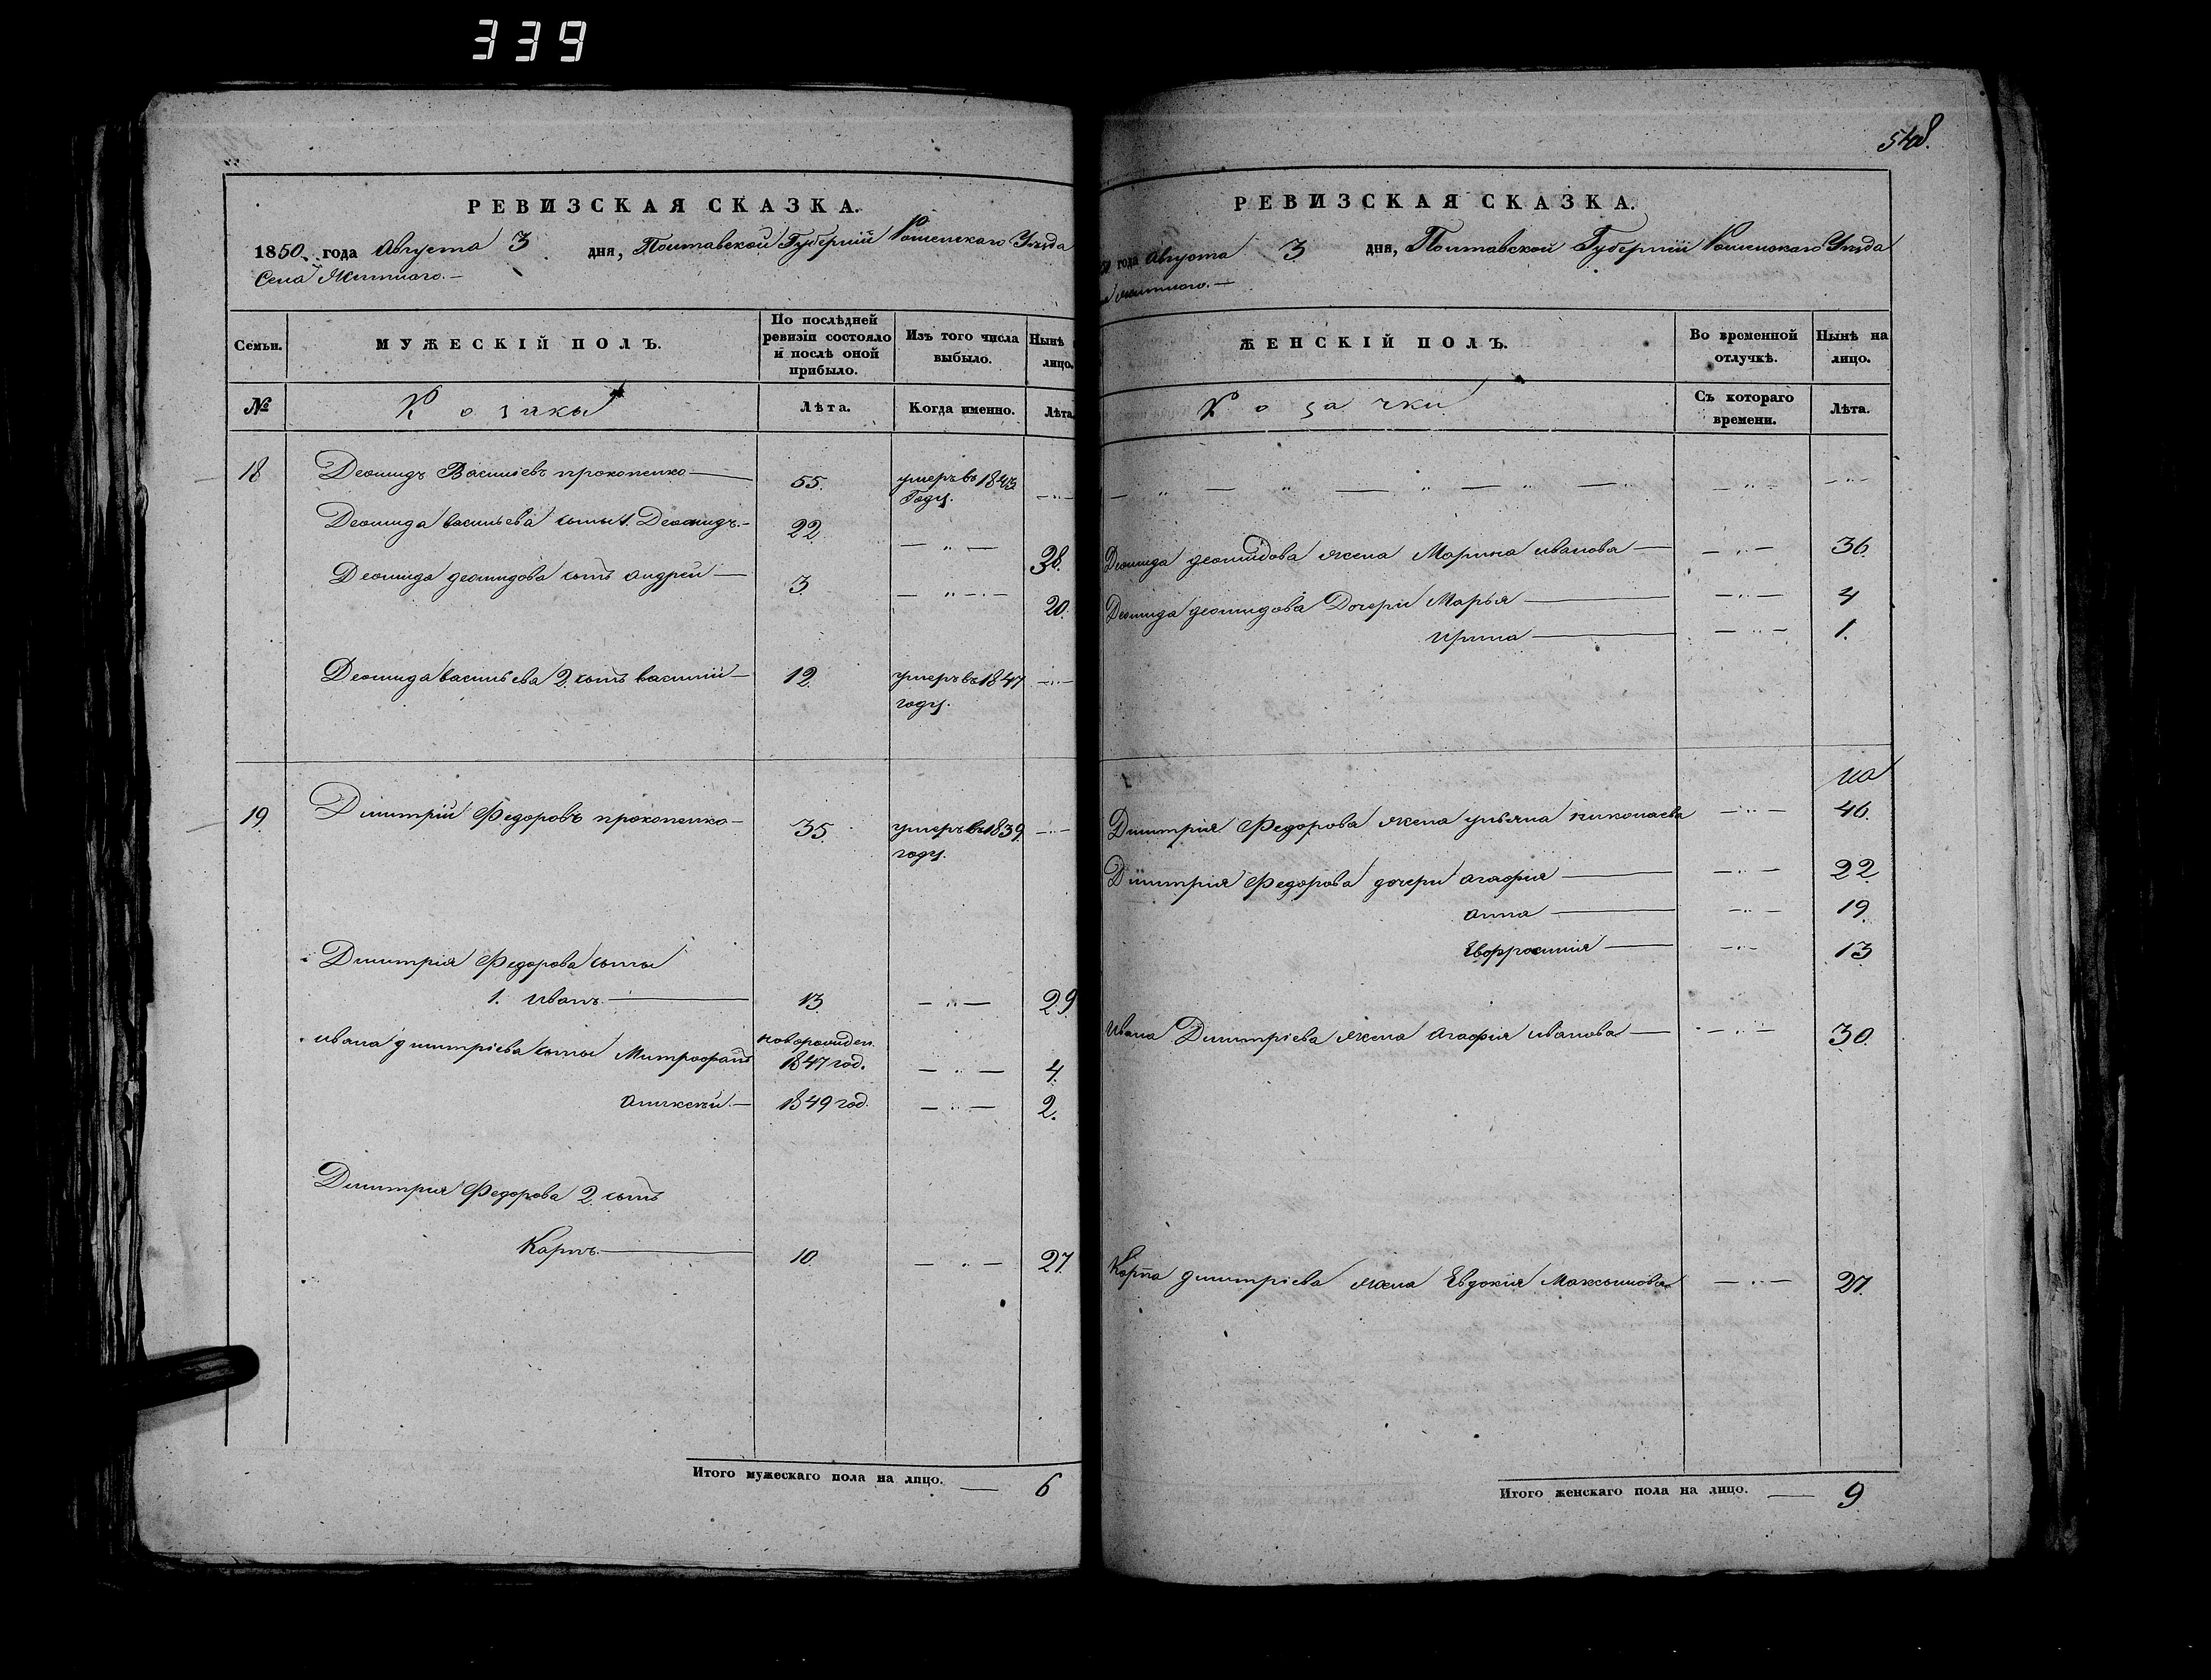 339
548.
РЕВИЗСКАЯ СКАЗКА.
1850 года Августа 3 дня, Полтавской Губерніи Роменскаго Уѣзда
Села Житнаго.
Семьи.
МУЖЕСКІЙ ПОЛЪ.
По послѣдней ревизіи состояло и послѣ оной прибыло.
Изъ того числа выбыло.
Нынѣ
лицо.
№
Козаки
Лѣта.
Когда именно.
Лѣта.
18 Леонидъ Васильевъ прокопенко 55. умеръ въ 1843
Году.
Леонида васильева сыны 1. Леонидъ 22 38.
Леонида леонидова сынъ андрей 3 20.
Леонида васильева 2. сынъ василій 12. умеръ въ 1847
году.
19 Дмитрій Федоровъ прокопенко 35. умеръ въ 1839
году.
Дмитрія Федорова сыны
1. иванъ 13. 29
ивана дмитріева сыны Митрофанъ новорожден 1847 год. 4.
алексѣй 1849 год. 2.
Дмитрия Федорова 2. сынъ
Карпъ 10. 27.
Итого мужескаго пола на лицо. 6
РЕВИЗСКАЯ СКАЗКА.
года Августа 3 дня, Полтавской Губерніи Роменскаго Уѣзда
житнаго.
ЖЕНСКІЙ ПОЛЪ.
Во временной отлучкѣ.
Нынѣ на лицо.
Козачки
Съ котораго времени.
Лѣта.
Леонида леонидова жена Марина иванова 36.
Леонида леонидова Дочери Марья 4
ирина 1.
Дмитрія Федорова жена ульяна николаева 46.
Дмитрія Федорова дочери агафія 22
анна 19.
Евфросинія 13
ивана Дмитріева жена Агафія иванова 30.
Карпа дмитріева жена Евдокія Максимова 27.
Итого женскаго пола на лицо. 9